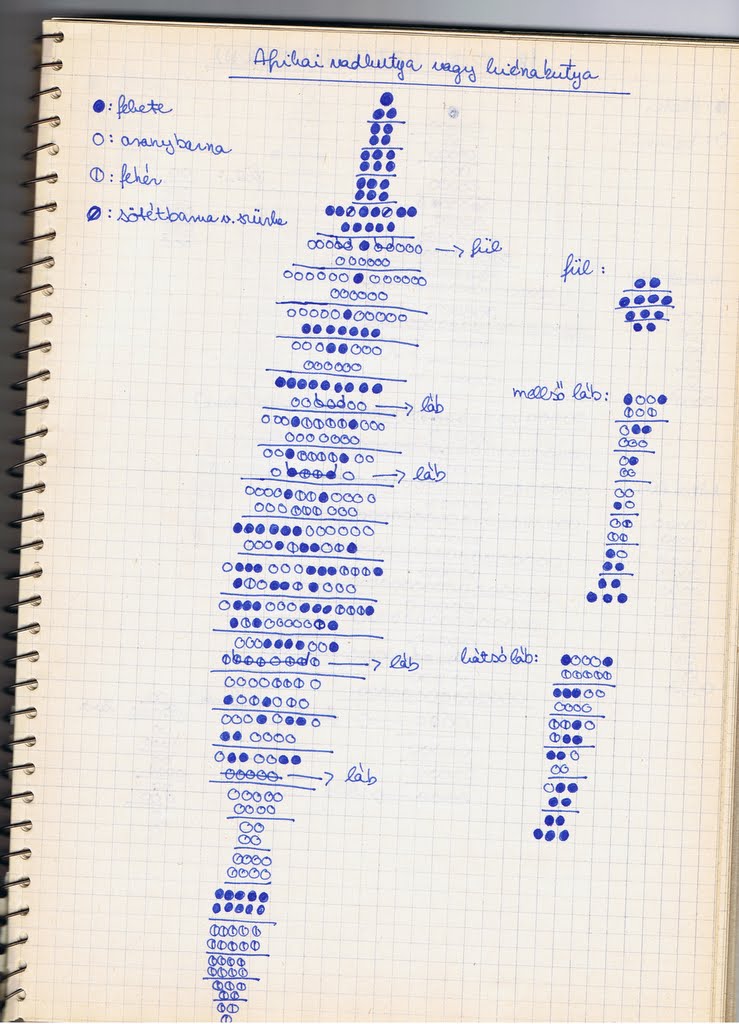 Afrikai vadkutya vagy hiénakutya
: fekete
: aranybarna
: fehér
: sötétbarna v. szürke
→ fül
→ láb
→ láb
→ láb
→ láb
fül :
mellső láb:
hátsó láb: